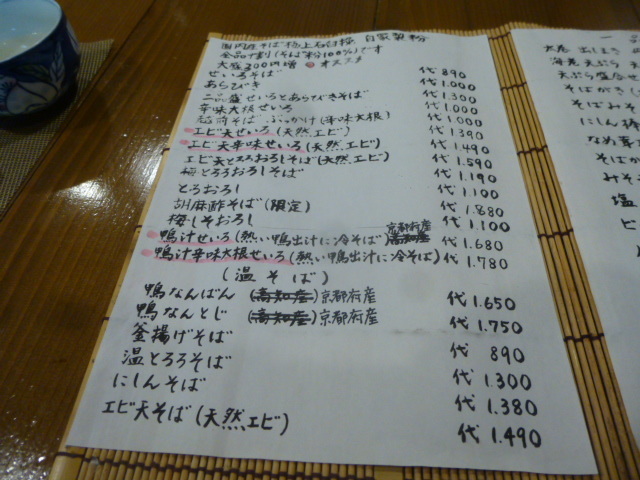 国内産そば極上石臼挽 自家製粉
全品十割(そば粉100%)です
大盛300円増 オススメ
せいろそば 代890
あらびき 代1.000
二品盛せいろとあらびきそば 代1.300
辛味大根せいろ 代1.000
越前そば ぶっかけ(辛味大根) 代1.000
エビ天せいろ(天然エビ) 代1.390
エビ天辛味せいろ(天然エビ) 代1.490
エビ天とろろおろしそば(天然エビ) 代1.590
梅とろろおろしそば 代1.190
とろおろし 代1.100
胡麻酢そば(限定) 代1.880
梅しそおろし 代1.100
鴨汁せいろ(熱い鴨出汁に冷そば) 京都府産 高知産 代1.680
鴨汁辛味大根せいろ(熱い鴨出汁に冷そば) 代1.780
(温そば)
鴨なんばん (高知産)京都府産 代1.650
鴨なんとじ (高知産)京都府産 代1.750
釜揚げそば 代890
温とろろそば 代1.300
にしんそば 代1.380
エビ天そば(天然エビ) 代1.490
一品
大根 出しまき
海老天ぷら
天ぷら盛合
そばがき
そばみそ
にしん棒
なめ茸
そばか
みそ
塩
と